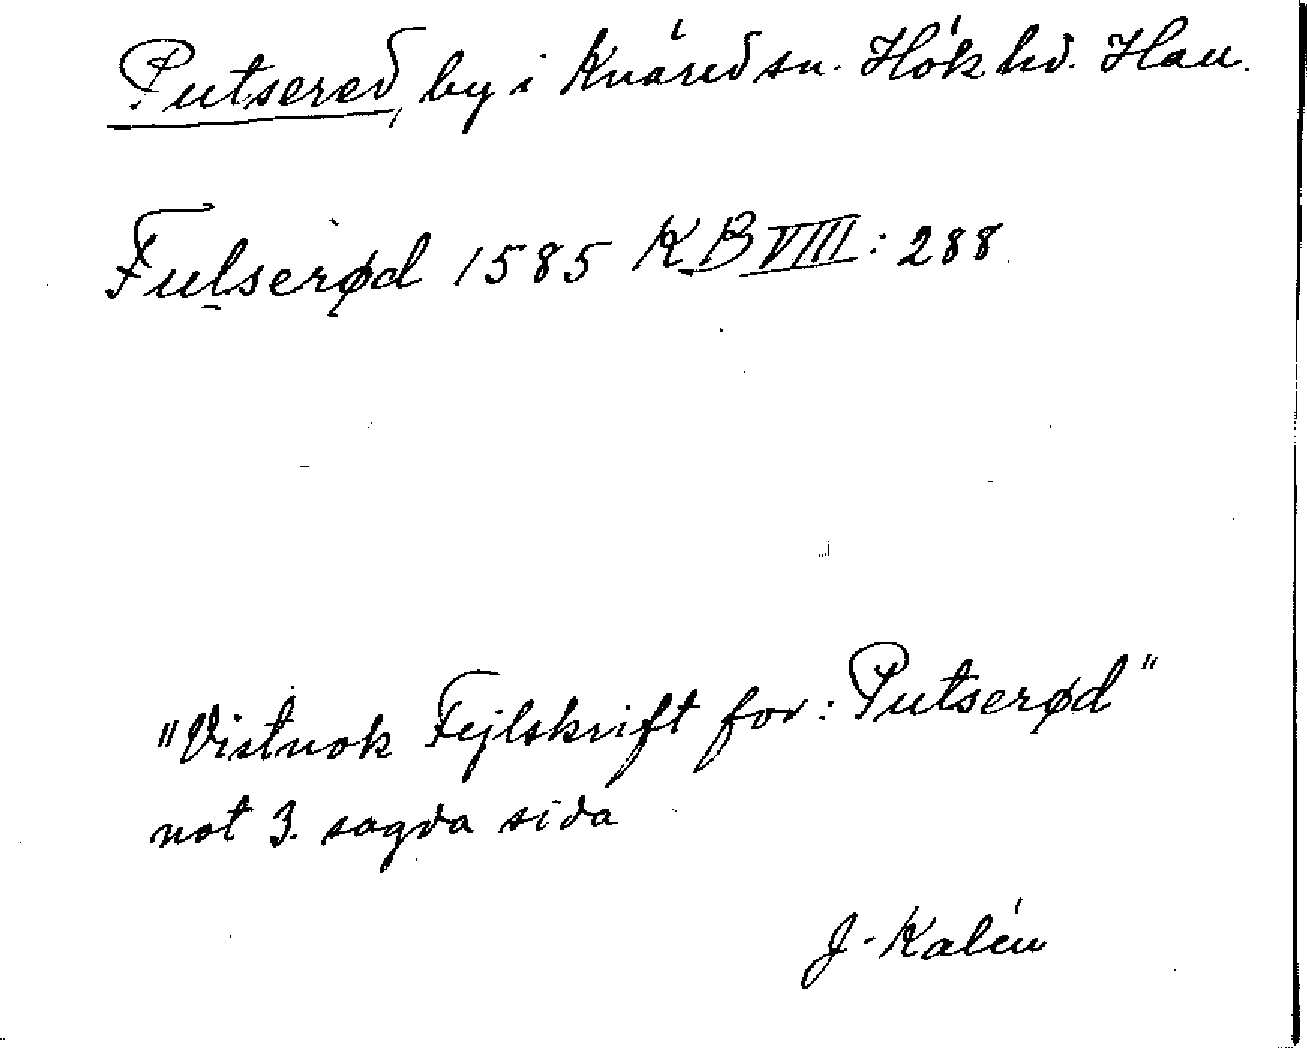 Putsered, by i Knäred sn. Hök hd. Hall.
Fulserød 1585 KB VIII: 288
"Vistnok Fejlskrift for: Putserød"
not 3. sagda sida
J. Kalén